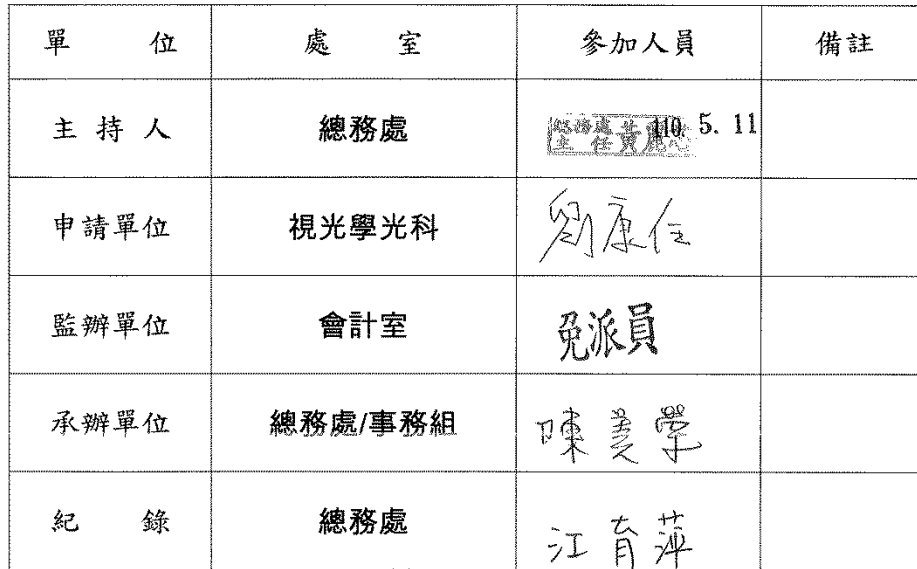 單 位 處 室 參加人員 備註
主持人 總務處 總務處 主任 110. 5. 11
申請單位 視光學光科 劉康任
監辦單位 會計室 免派員
承辦單位 總務處/事務組 陳美
紀 錄 總務處 江育萍